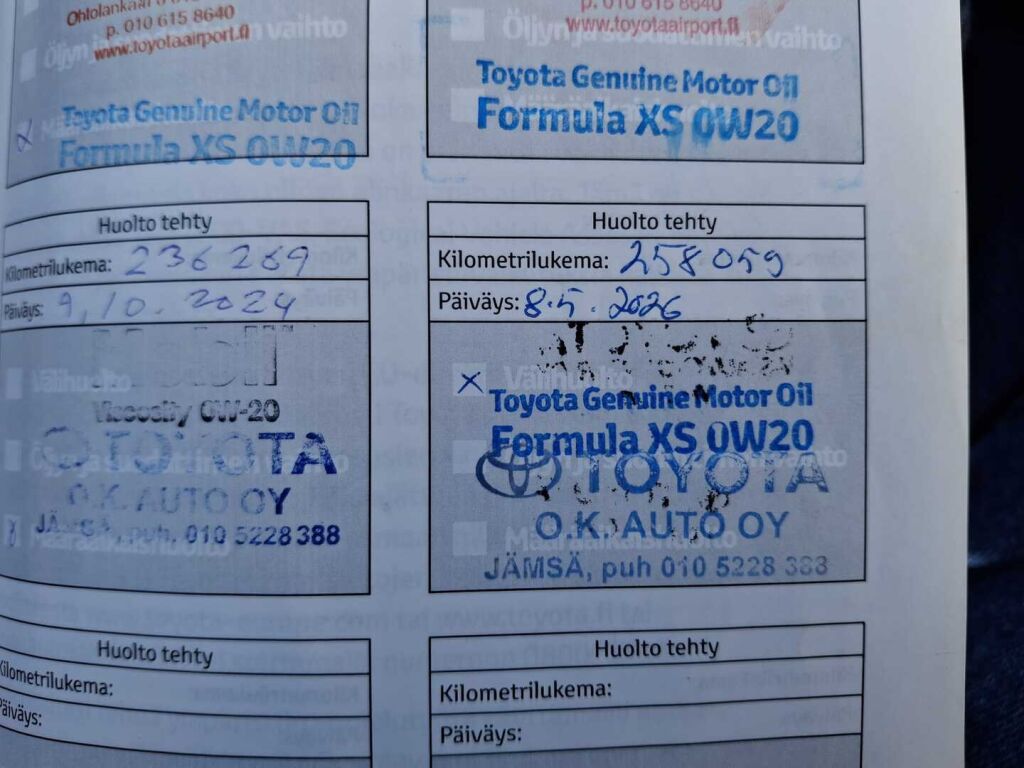 Ohtolankaari
p. 010 615 8640
www.toyotaairport.fi
Öljyn ja suodattimen vaihto
Toyota Genuine Motor Oil
Formula XS 0W20
p. 010 615 8640
www.toyotaairport.fi
Öljyn ja suodattimen vaihto
Toyota Genuine Motor Oil
Formula XS 0W20
Huolto tehty
Kilometrilukema: 236 269
Päiväys: 9,10. 2024
Välihuolto
Viscosity 0W-20
TOYOTA
O.K. AUTO OY
JÄMSÄ, puh. 010 5228 388
Määräaikaishuolto
Huolto tehty
Kilometrilukema: 258 059
Päiväys: 8.5. 2026
x Välihuolto
Toyota Genuine Motor Oil
Formula XS 0W20
TOYOTA
O.K. AUTO OY
Määräaikaishuolto
JÄMSÄ, puh 010 5228 388
Huolto tehty
Kilometrilukema:
Päiväys:
Huolto tehty
Kilometrilukema:
Päiväys: